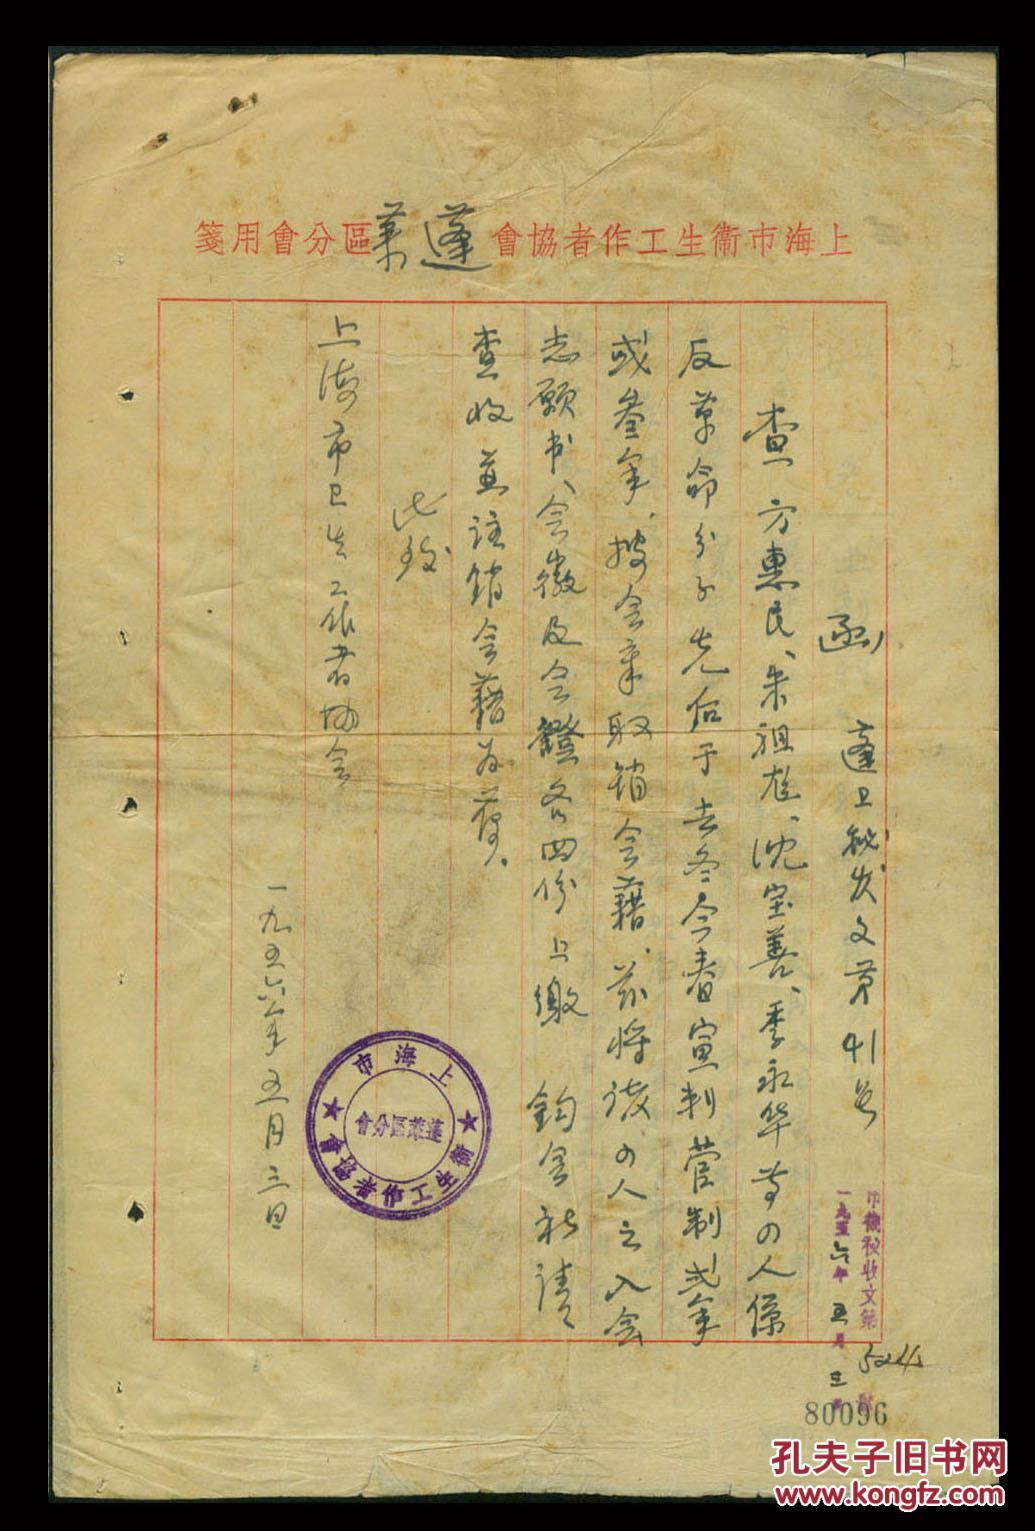 上海市衞生工作者協會蓬萊區分會用箋
函 蓬卫秘发文第41号
查方惠民、朱祖尨、沈宝善、季永华等四人係
反革命分子先后于去冬今春宣判管制式年
或叁年、按会章取销会藉、兹将该四人之入会
志願书、会徽及会證各四份上缴 鈞会祈请
查收並註销会藉为荷。
此致
上海市卫生工作者协会
一九五六年五月三日
上海市
衞生工作者協會
蓬萊區分會
市衞秘收文第 524
一九五六年五月三日
80096
孔夫子旧书网
www.kongfz.com